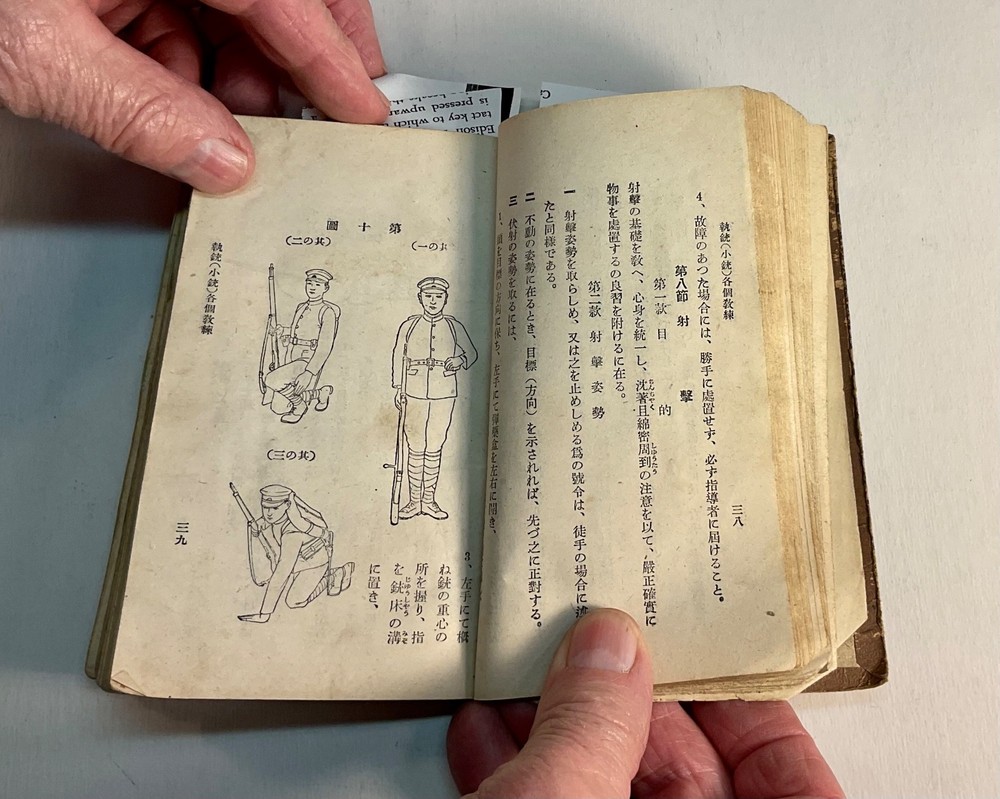 執銃(小銃)各個敎練
三八
4、故障のあつた場合には、勝手に處置せず、必ず指導者に屆けること。
第八節 射擊
第一款 目的
射擊の基礎を敎へ、心身を統一し、沈著且綿密周到の注意を以て、嚴正確實に
物事を處置するの良習を附けるに在る。
第二款 射擊姿勢
一 射擊姿勢を取らしめ、又は之を止めしめる爲の號令は、徒手の場合に
たと同樣である。
二 不動の姿勢に在るとき、目標(方向)を示されれば、先づ之に正對する。
三 伏射の姿勢を取るには、
目標の方向に保ち、左手にて彈藥盒を左右に開き、
3、左手にて槪
ね銃の重心の
所を握り、指
を銃床の溝
に置き、
第十圖
(其の一
(其の二)
(其の三)
執銃(小銃)各個敎練
三九
Edison
tact key to which
is pressed upwar